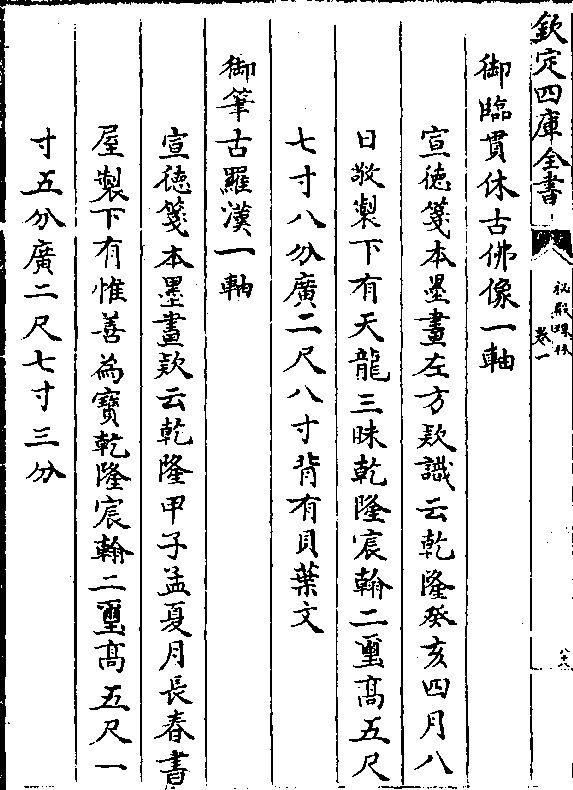 欽定四庫全書
秘殿珠林
卷一
御臨貫休古佛像一軸
宣徳箋本墨畫左方欵識云乾隆癸亥四月八
日敬製下有天龍三昧乾隆宸翰二璽高五尺
七寸八分廣二尺八寸背有貝葉文
御筆古羅漢一軸
宣徳箋本墨畫欵云乾隆甲子孟夏月長春書
屋製下有惟善為寶乾隆宸翰二璽高五尺一
寸五分廣二尺七寸三分